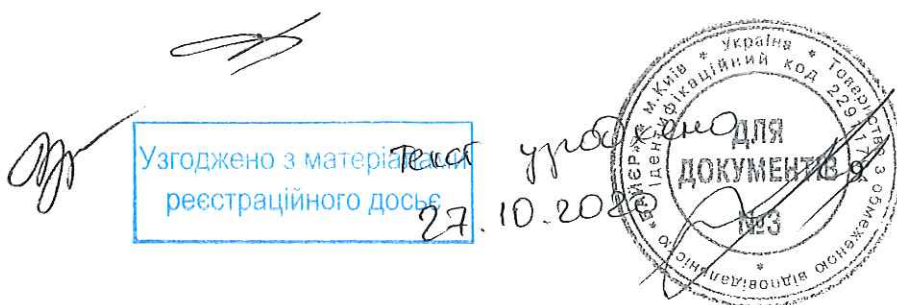 Узгоджено з матеріалами
реєстраційного досьє
текст узгоджено
27.10.2020
* Україна * Товариство з обмеженою відповідальністю «БАЙЄР» * м.Київ
Ідентифікаційний код
ДЛЯ
ДОКУМЕНТІВ
№3